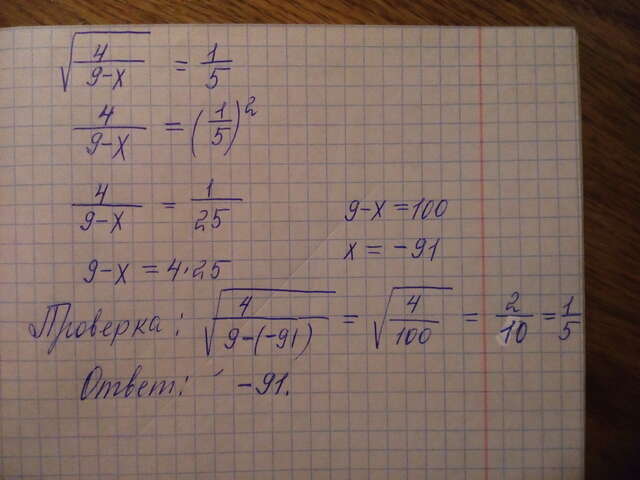 √(4/(9-x)) = 1/5
4/(9-x) = (1/5)²
4/(9-x) = 1/25
9-x = 4·25
9-x = 100
x = -91
Проверка: √(4/(9-(-91))) = √(4/100) = 2/10 = 1/5
Ответ: -91.